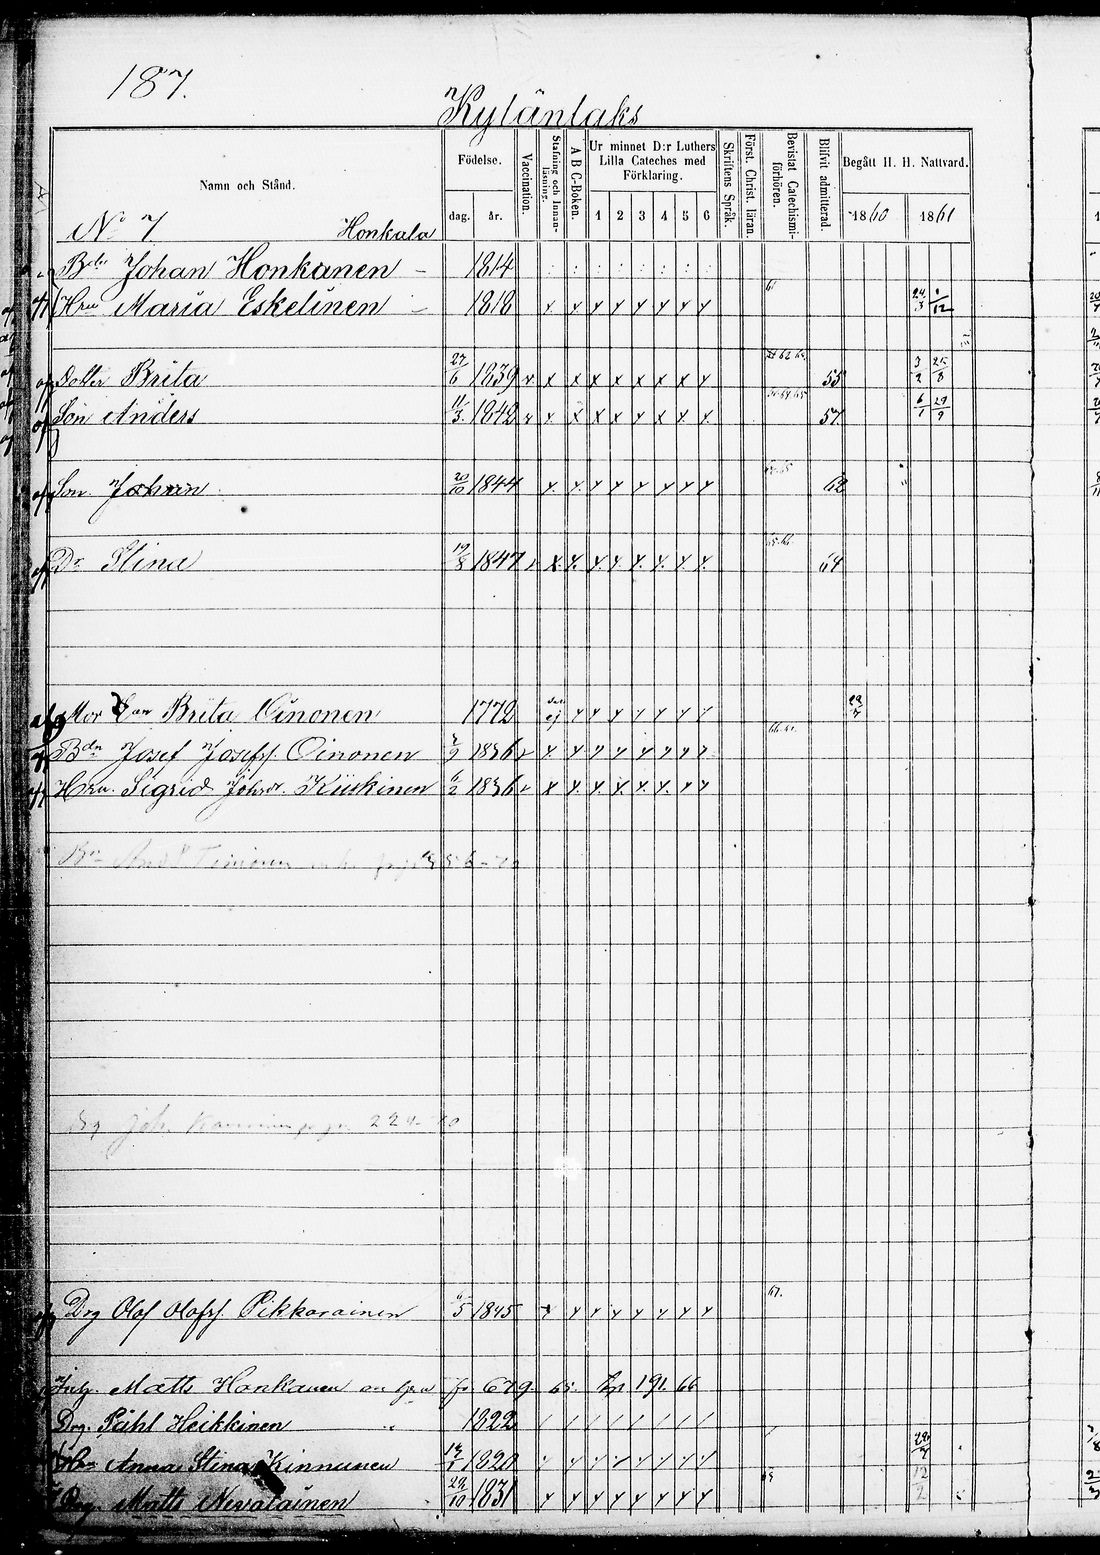 187.
Kylänlaks
Namn och Stånd. Födelse. Vaccination. Stafning och Innanläsning. A B C-Boken. Ur minnet D:r Luthers Lilla Cateches med Förklaring. Skriftens Språk. Först. Christ. läran. Bevistat Catechismiförhören. Blifvit admitterad. Begått H. H. Nattvard.
dag. år. 1 2 3 4 5 6 1860 1861
No 7 Honkala
Johan Honkanen 1814
Hru Maria Eskelinen 1818 x x x x x x x x 61 24/3 1/12
Dotter Brita 27/6 1839 v x x x x x x x x 55 3/2 25/8
Son Anders 11/3 1842 v x x x x x x x x 57 6/1 29/9
Son Johan 20/10 1844 x x x x x x x x 62
Dr Stina 19/8 1847 x x x x x x x x 64
Mor Brita Oinonen 1772 ej x x x x x x x
Bdn Josef Josefs. Oinonen 1836 x x x x x x x x
Hru. Sigrid Johsdr. Kiiskinen 6/2 1836 x x x x x x x x
Drg Joh. 224
Drg Olof Olofs. Pikkarainen 1845 x x x x x x x x 67.
Inh. Matts Honkanen 679 65. 191. 66
Drg. Påhl Heikkinen 1822 / / / / / / / /
Anna Stina Kinnunen 1820
Drg. Matts Nevalainen 29/10 1831 x x x x x x x x 12/2